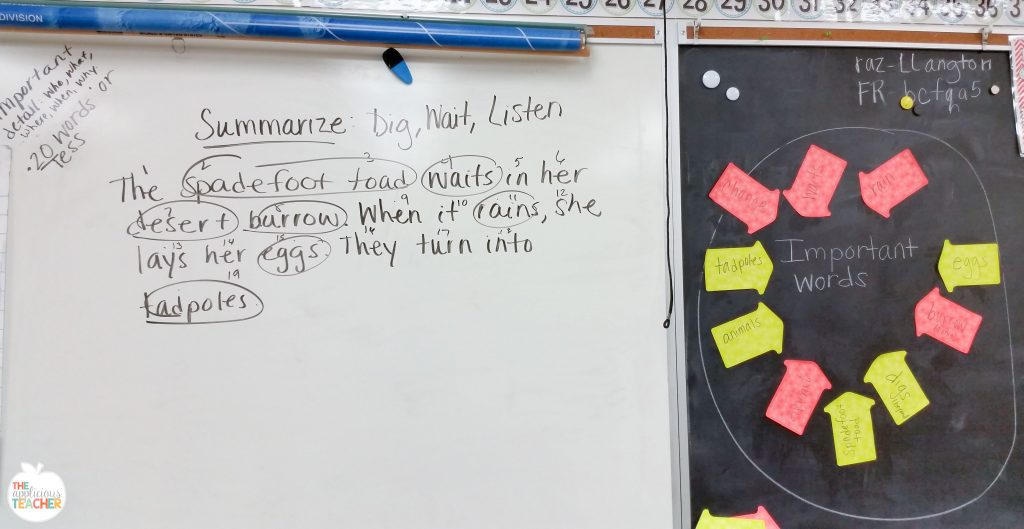 DIVISION
26 27 28 29 30 31 32 33 34 35 36
important
detail: who, what,
where, when, why
. 20 words or
less
Summarize: Dig, Wait, Listen
The spadefoot toad waits in her
desert burrow. When it rains, she
lays her eggs. They turn into
tadpoles.
1 2 3 4 5 6
9 10 11 12
13 14 15 17
19
raz-LLangton
FR-bcfqa5
h
Important
words
change
waits
rain
tadpoles
eggs
animals
burrow
digs
spadefoot
toad
THE
applicious
TEACHER